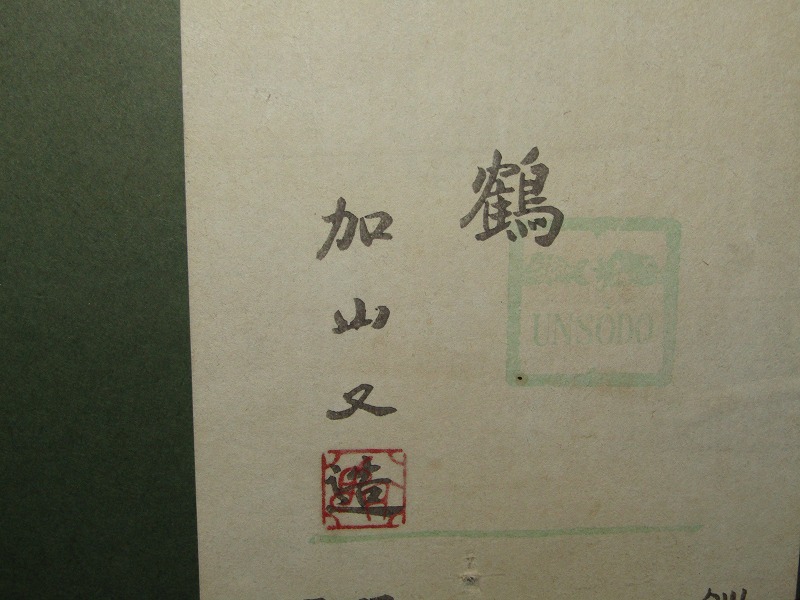 鶴
加山又造
UNSŌDŌ